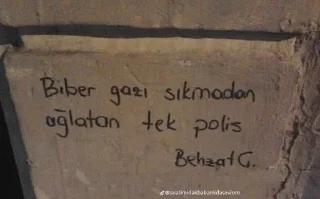 Biber gazı sıkmadan
ağlatan tek polis
Behzat Ç.